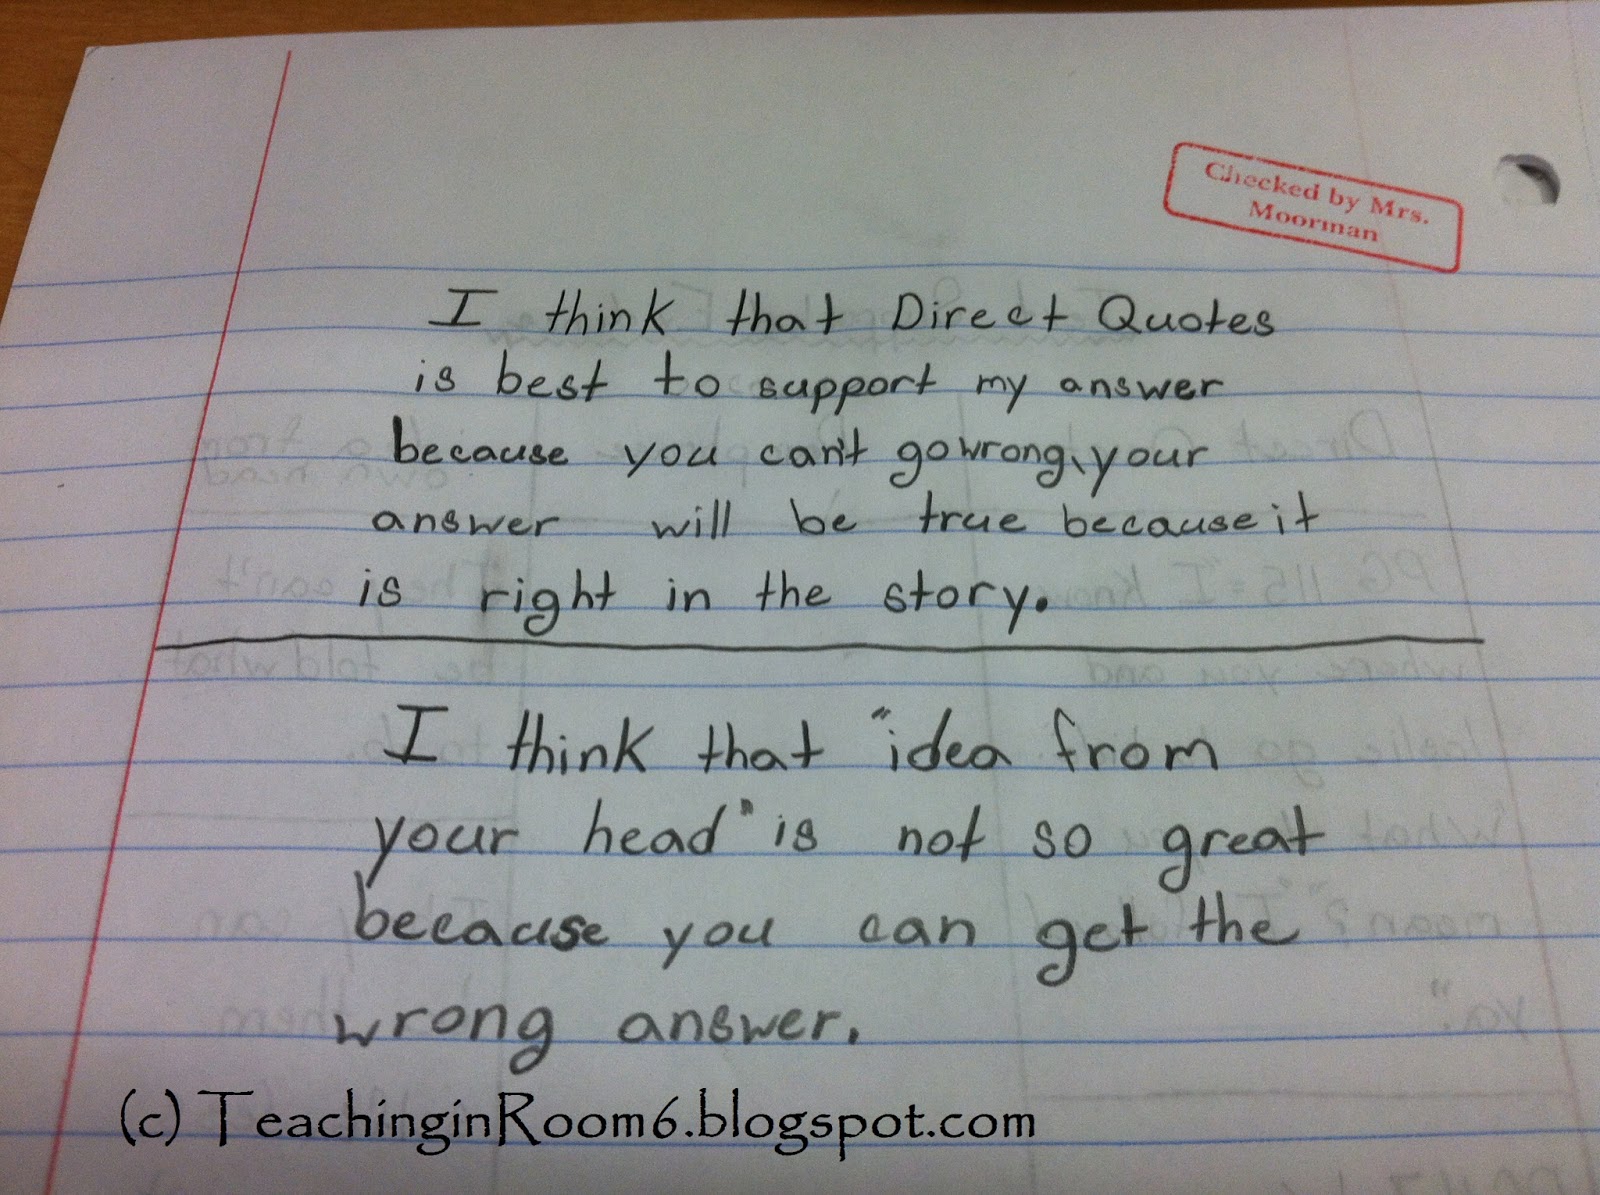 Checked by Mrs.
Moorman
I think that Direct Quotes
is best to support my answer
because you can't go wrong, your
answer will be true because it
is right in the story.
I think that "idea from
your head" is not so great
because you can get the
wrong answer.
(c) TeachinginRoom6.blogspot.com